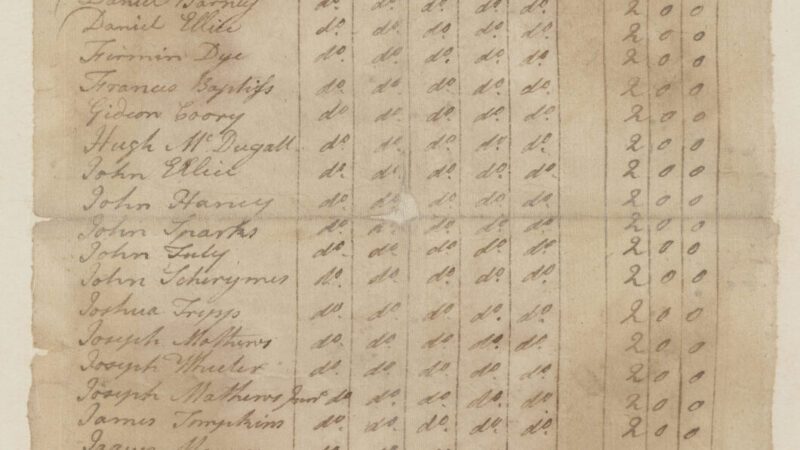 Daniel Barney do. do. do. do. do. 2 0 0
Daniel Ellice do. do. do. do. do. 2 0 0
Firmin Dye do. do. do. do. do. 2 0 0
Francis Baptiss do. do. do. do. do. 2 0 0
Gideon Coory do do. do. do. do. 2 0 0
Hugh McDugall do. do. do. do. do. 2 0 0
John Ellice do. do. do. do. do. 2 0 0
John Haney do. do. do. do. do. 2 0 0
John Sparks do. do. do. do. 2 0 0
John July do. do. do. do. do. 2 0 0
John Scherymes do. do. do. do. do. 2 0 0
Joshua Tripp do. do. do. do. do. 2 0 0
Joseph Mathews do. do. do. do. do. 2 0 0
Joseph Wheeler do. do. do. do. do. 2 0 0
Joseph Mathews Junr do do. do. do. do. 2 0 0
James Tompkins do. do. do. do. do. 2 0 0